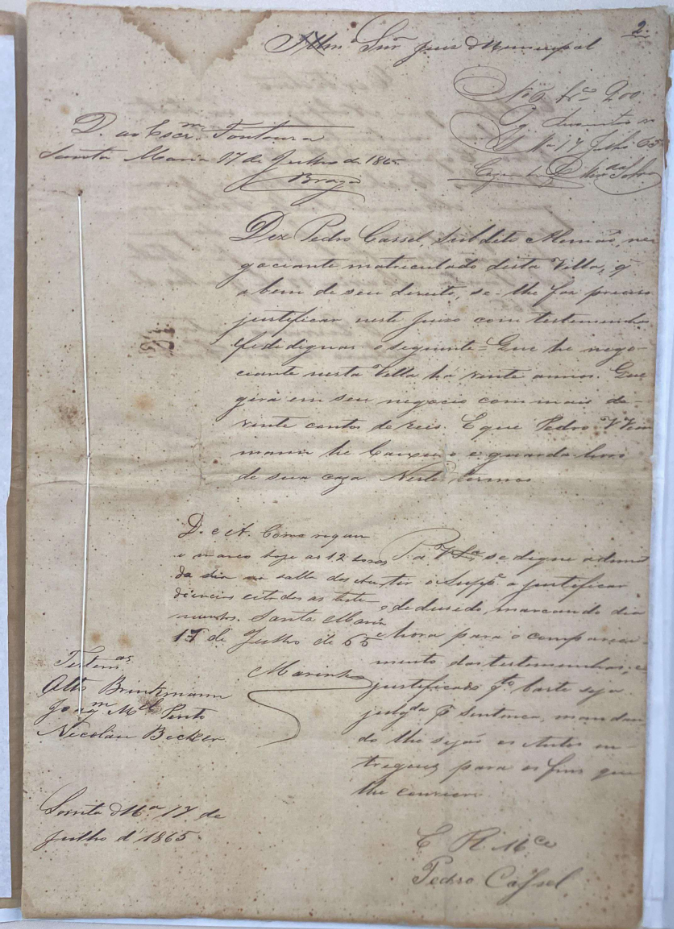 2.
Illmo Snr Juiz Municipal
No 6 Rs 200
Pg. duzentos rs
S. Ma 17 Julho 65
D. ao Escrm Fontoura
Santa Maria 17 de Julho de 1865
Braga
Diz Pedro Cassel, subdito Alemão, ne-
gociante matriculado desta Villa, q
a bem de seu direito, se lhe faz preciso
justificar neste Juizo com testemunhas
fidedignas o seguinte = Que he nego-
ciante nesta Villa ha vinte annos. Que
gira em seu negocio com mais de
vinte contos de reis. E que Pedro
he Caixeiro e guarda livros
de sua caza Nestes termos
P. a V. Sa se digne admittir
o Suppe a justificar
o deduzido, marcando dia
e hora para o compareci-
mento das testemunhas, e
justificado qto baste seja
julgda p Sentença, mandan-
do lhe sejão os Autos en-
tregues para os fins que
lhe convier
D. e A. Como requer
e marco hoje as 12 horas
do dia na salla das au-
diencias citadas as teste-
munhas. Santa Maria
17 de Julho de 65
Marinho
Testemas
Otto Brinkmann
Joaqm Mel Pinto
Nicolau Becker
Santa Ma 17 de
Julho d 1865.
E. R. Mce
Pedro Cassel